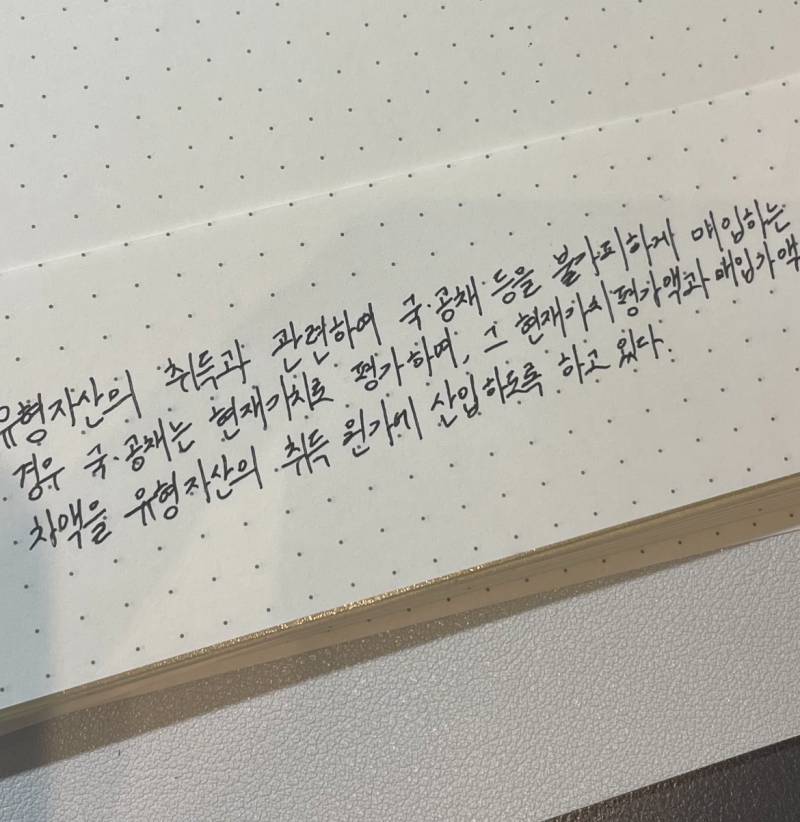 유형자산의 취득과 관련하여 국·공채 등을 불가피하게 매입하는
경우 국·공채는 현재가치로 평가하며, 그 현재가치평가액과 매입가액
차액을 유형자산의 취득 원가에 산입하도록 하고 있다.